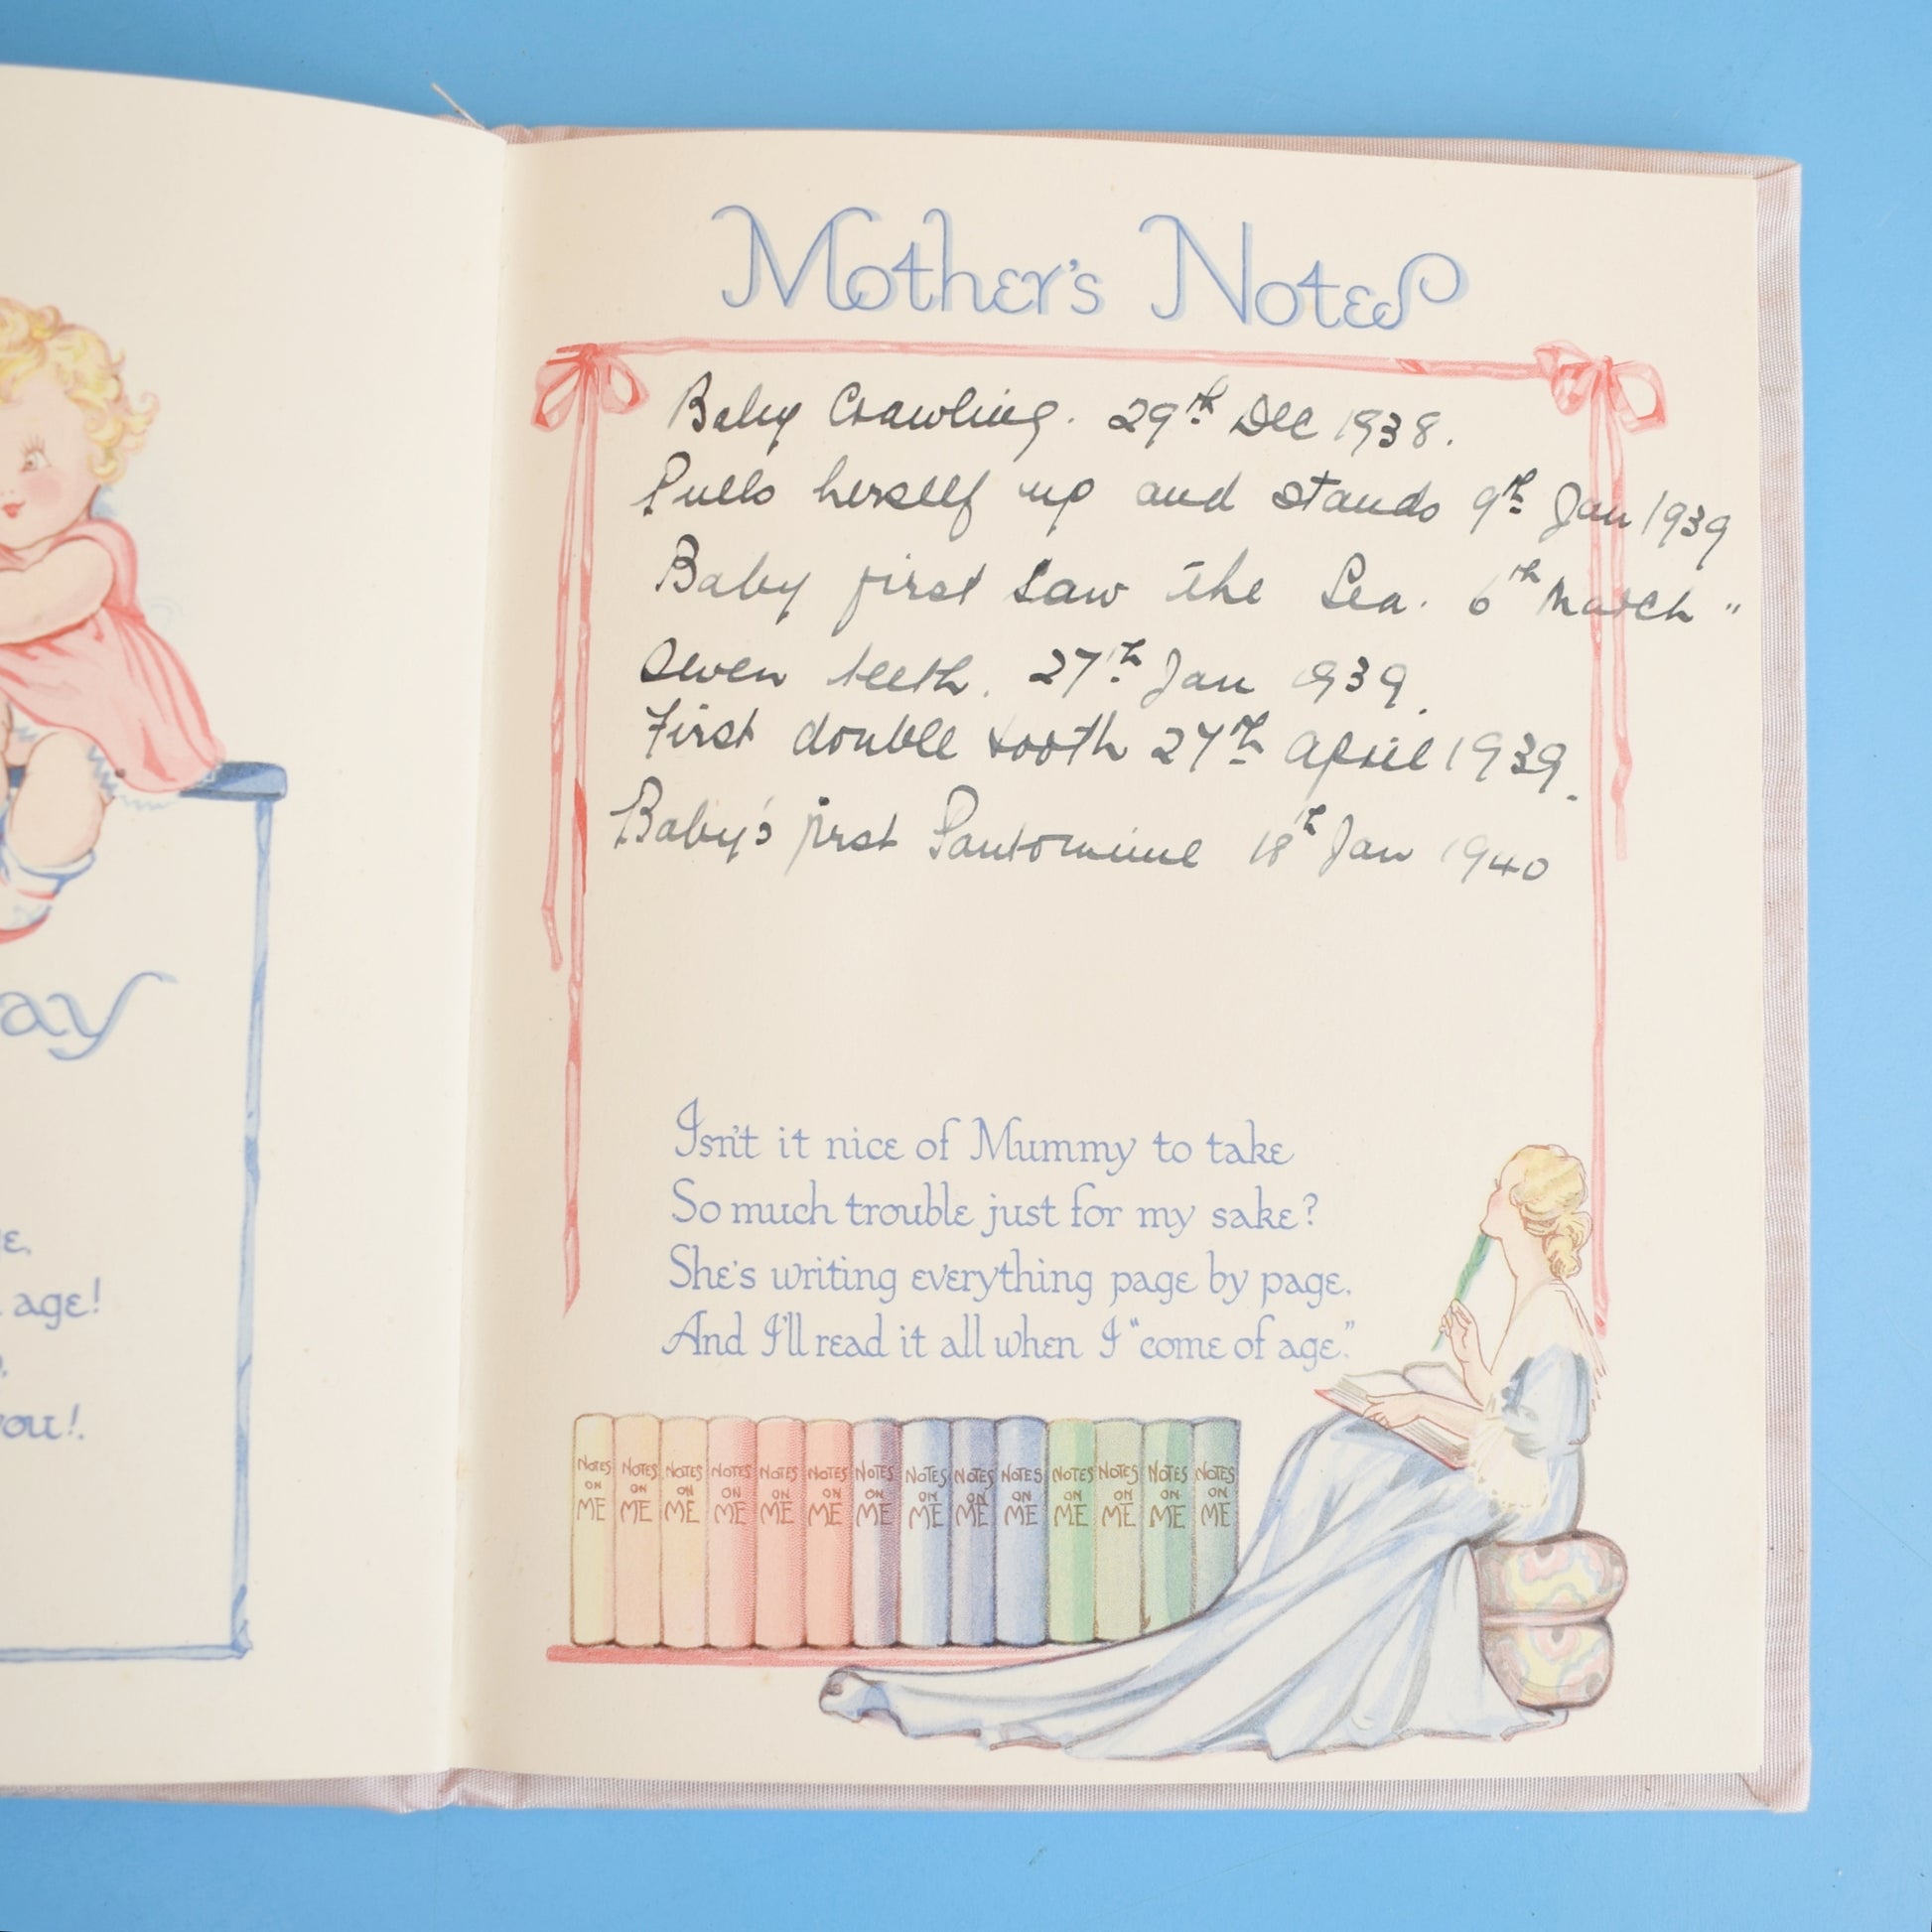 ay
e,
age!
you!
Mother's Notes
Baby Crawling. 29th Dec 1938.
Pulls herself up and stands 9th Jan 1939
Baby first saw the Sea. 6th March "
Seven teeth. 27th Jan 1939.
First double tooth 27th April 1939.
Baby's first Pantomime 18th Jan 1940
Isn't it nice of Mummy to take
So much trouble just for my sake?
She's writing everything page by page,
And I'll read it all when I "come of age."
NOTES ON ME NOTES ON ME NOTES ON ME NOTES ON ME NOTES ON ME NOTES ON ME NOTES ON ME NOTES ON ME NOTES ON ME NOTES ON ME NOTES ON ME NOTES ON ME NOTES ON ME NOTES ON ME